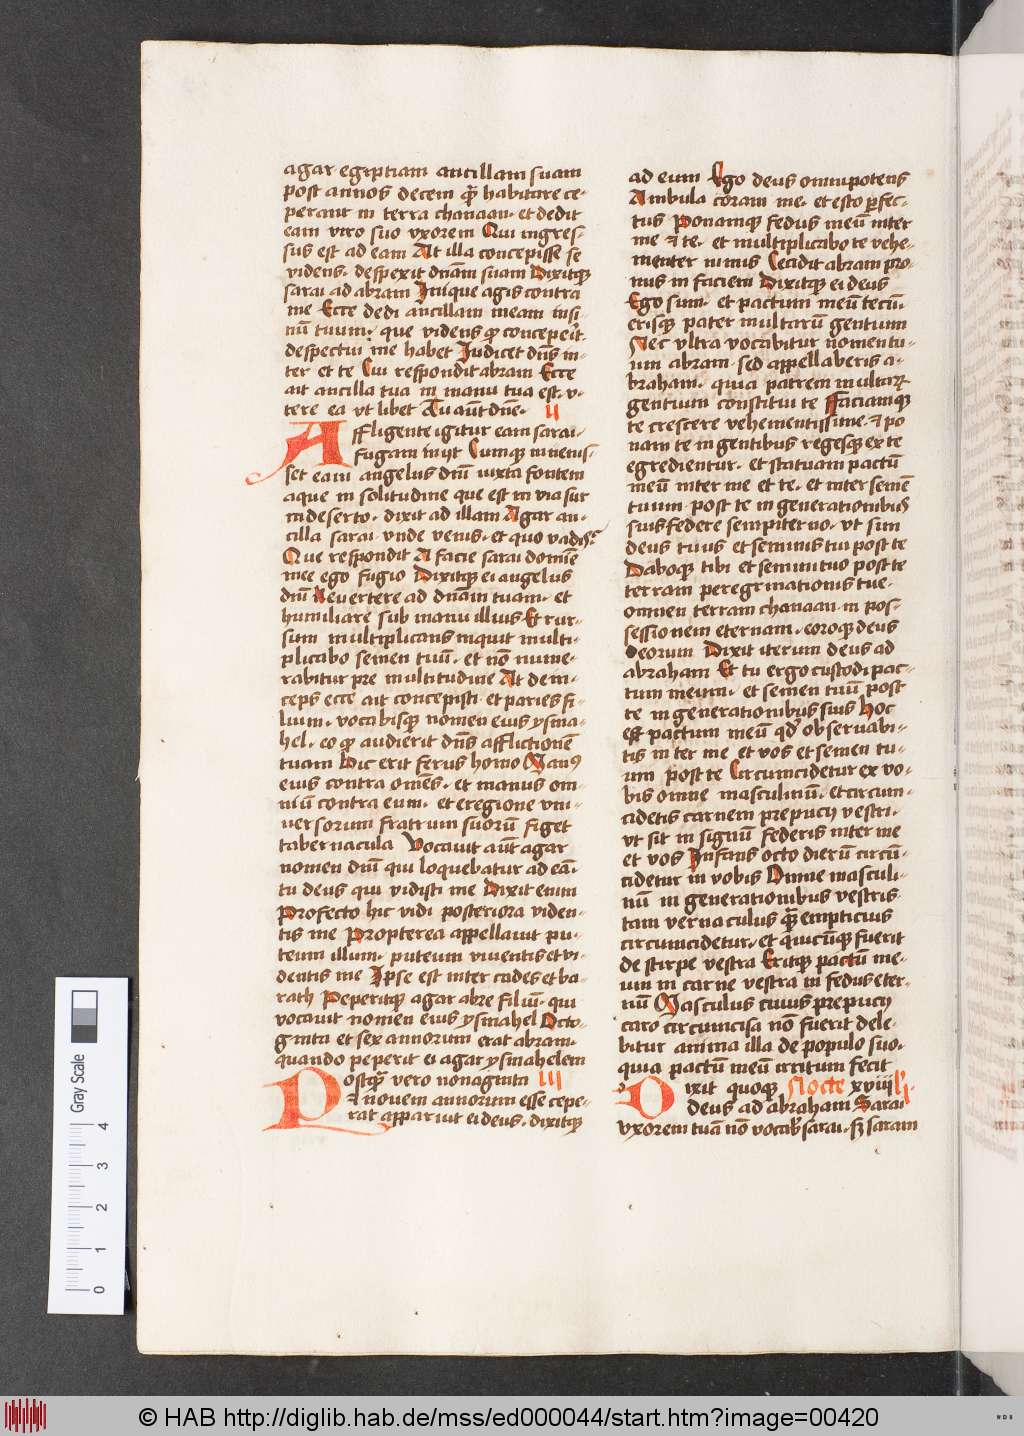 agar egiptiam ancillam suam
post annos decem q̄ habitare ce-
perant in terra chanaan· et dedit
eam viro suo vxorem Qui ingres-
sus est ad eam At illa concepisse se
videns· despexit dnām suam Dixitqꝫ
sarai ad abram Inique agis contra
me Ecce dedi ancillam meam in si-
nū tuum· que videns ꝙ conceperit·
despectui me habet Judicet dn̄s in-
ter et te Cui respondit abram Ecce
ait ancilla tua in manu tua est· v-
tere ea vt libet Tu aūt dn̄e· II
Affligente igitur eam sarai·
fugam iniit Cumqꝫ inuenis-
set eam angelus dn̄i iuxta fontem
aque in solitudine que est in via sur
in deserto· dixit ad illam Agar an-
cilla sarai· vnde venis· et quo vadis?
Que respondit A facie sarai domīe
mee ego fugio Dixitqꝫ ei angelus
dn̄i Reuertere ad dnām tuam· et
humiliare sub manu illius Et rur-
sum multiplicans inquit multi-
plicabo semen tuū· et nō nume-
rabitur pre multitudine At dein-
ceps ecce ait concepisti· et paries fi-
lium· vocabisqꝫ nomen eius ysma-
hel· eo ꝙ audierit dn̄s afflictionē
tuam Hic erit ferus homo Manꝰ
eius contra omēs· et manus om-
niū contra eum· et eregione vni-
uersorum fratrum suorū figet
tabernacula Vocauit aūt agar
nomen dn̄i qui loquebatur ad eā·
tu deus qui vidisti me Dixit enim
Profecto hic vidi posteriora viden-
tis me Propterea appellauit pu-
teum illum· puteum viuentis et vi-
dentis me Ipse est inter cades et ba-
rath Peperitqꝫ agar abre filiū· qui
vocauit nomen eius ysmahel Octo-
ginta et sex annorum erat abram·
quando peperit ei agar ysmahelem
Postq̄ vero nonaginta III
et nouem annorum esse cepe-
rat apparuit ei deus· dixitqꝫ
ad eum Ego deus omnipotens
Ambula coram me· et esto perfec-
tus Ponamqꝫ fedus meū inter
me et te· et multiplicabo te vehe-
menter nimis Cecidit abram pro-
nus in faciem Dixitqꝫ ei deus
Ego sum· et pactum meū tecū·
erisqꝫ pater multarū gentium
Nec vltra vocabitur nomen tu-
um abram· sed appellaberis a-
braham· quia patrem multarꝝ
gentium constitui te Faciamqꝫ
te crescere vehementissime· et po
nam te in gentibus regesqꝫ ex te
egredientur· et statuam pactū
meū inter me et te· et inter semē
tuum post te in generationibus
suis federe sempiterno· vt sim
deus tuus et seminis tui post te
Daboqꝫ tibi et semini tuo post te
terram peregrinationis tue·
omnem terram chanaan in pos-
sessionem eternam· eoroqꝫ deus
eorum Dixit iterum deus ad
abraham Et tu ergo custodi pac-
tum meum· et semen tuū post
te in generationibus suis Hoc
est pactum meū qd obseruabi-
tis inter me et vos et semen tu-
um post te Circumcidetur ex vo-
bis omne masculinū· et circum-
cidetis carnem prepucii vestri·
vt sit in signū federis inter me
et vos Infans octo dierū circū-
cidetur in vobis Omne masculi-
nū in generationibus vestris
tam vernaculus q̄ empticius
circumcidetur· et quicūqꝫ fuerit
de stirpe vestra Eritqꝫ pactū me-
um in carne vestra in fedus eter-
nū Masculus cuius prepucii
caro circumcisa nō fuerit dele-
bitur anima illa de populo suo·
quia pactū meū irritum fecit
Dixit quoqꝫ Nocte xviii li·
deus ad abraham Sarai
vxorem tuā nō vocabis sarai· sꝫ saram
Gray Scale
0 1 2 3 4
© HAB http://diglib.hab.de/mss/ed000044/start.htm?image=00420